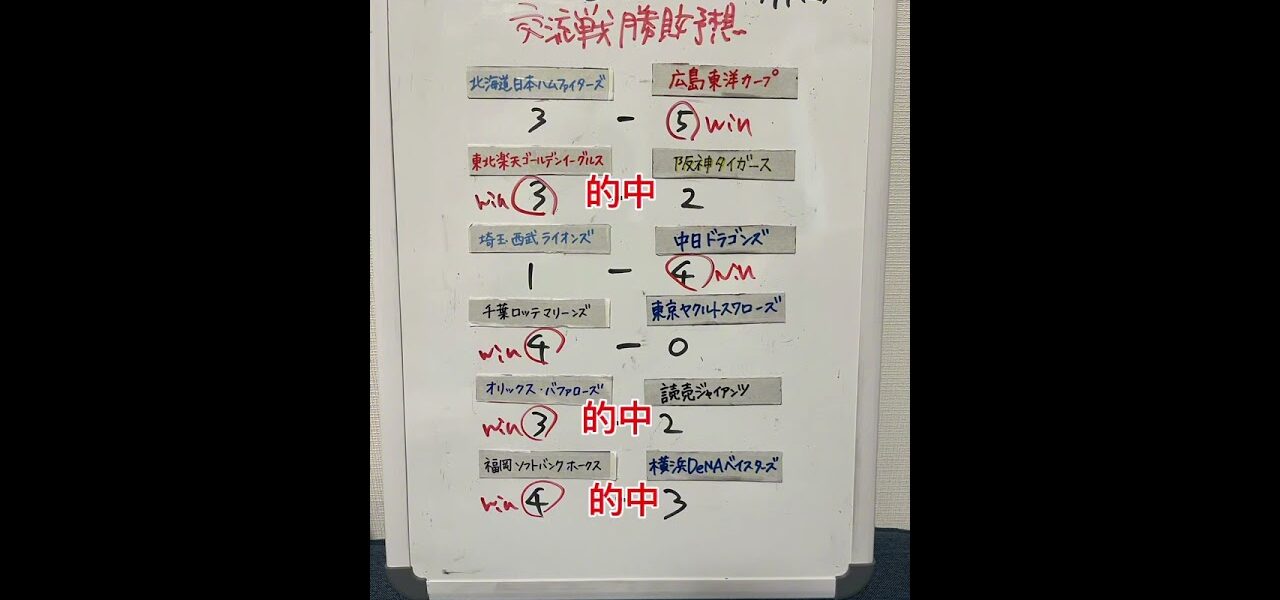 交流戦勝敗予想
北海道日本ハムファイターズ 広島東洋カープ
3 - 5 win
東北楽天ゴールデンイーグルス 阪神タイガース
win 3 的中 2
埼玉西武ライオンズ 中日ドラゴンズ
1 - 4 win
千葉ロッテマリーンズ 東京ヤクルトスワローズ
win 4 - 0
オリックス・バファローズ 読売ジャイアンツ
win 3 的中 2
福岡ソフトバンクホークス 横浜DeNAベイスターズ
win 4 的中 3